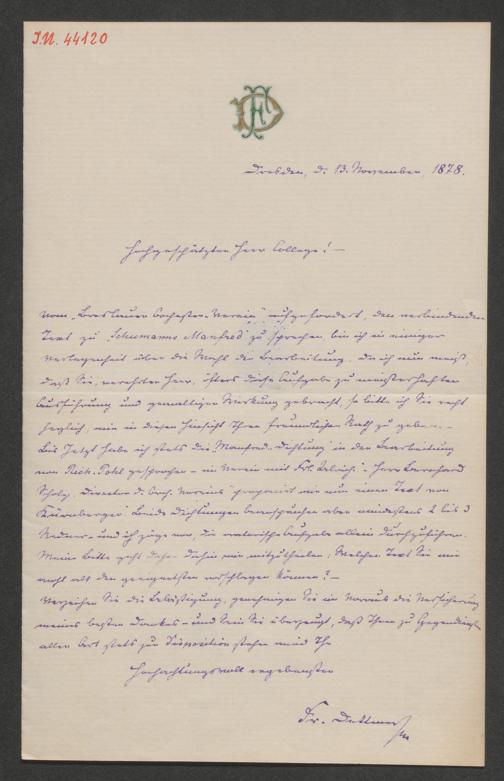 I.N. 44120
FD
Dresden, d. 13. November, 1878.
Hochgeschätzter Herr College! –
Vom „Breslauer Orchester-Verein" aufgefordert, den verbindenden
Text zu „Schumanns Manfred" zu sprechen, bin ich in einiger
Verlegenheit über die Wahl der Bearbeitung. Da ich nun weiß,
daß Sie, verehrter Herr, öfters diese Aufgabe zu meisterhafter
Ausführung und gewaltiger Wirkung gebracht, so bitte ich Sie recht
herzlich, mir in dieser Hinsicht Ihren freundlichen Rath zu geben. –
Bis jetzt habe ich stets die „Manfred-Dichtung" in der Bearbeitung
von Rich. Pohl gesprochen – im Verein mit Frl. Ulrich. Herr Bernhard
Scholz, Director d. Orch. Vereins proponirt mir nun einen Text von
Kürnberger. Beide Dichtungen beanspruchen aber mindestens 2 bis 3
Redner – und ich zöge vor, die oratorische Aufgabe allein durchzuführen.
Meine Bitte geht daher dahin mir mitzutheilen: Welchen Text Sie mir
wohl als den geeignetsten vorschlagen können? –
Verzeihen Sie die Belästigung, genehmigen Sie im Voraus die Versicherung
meines besten Dankes – und sein Sie überzeugt, daß Ihnen zu Gegendiensten
aller Art stets zur Disposition stehen wird Ihr
hochachtungsvoll ergebenster
Fr. Dettmer